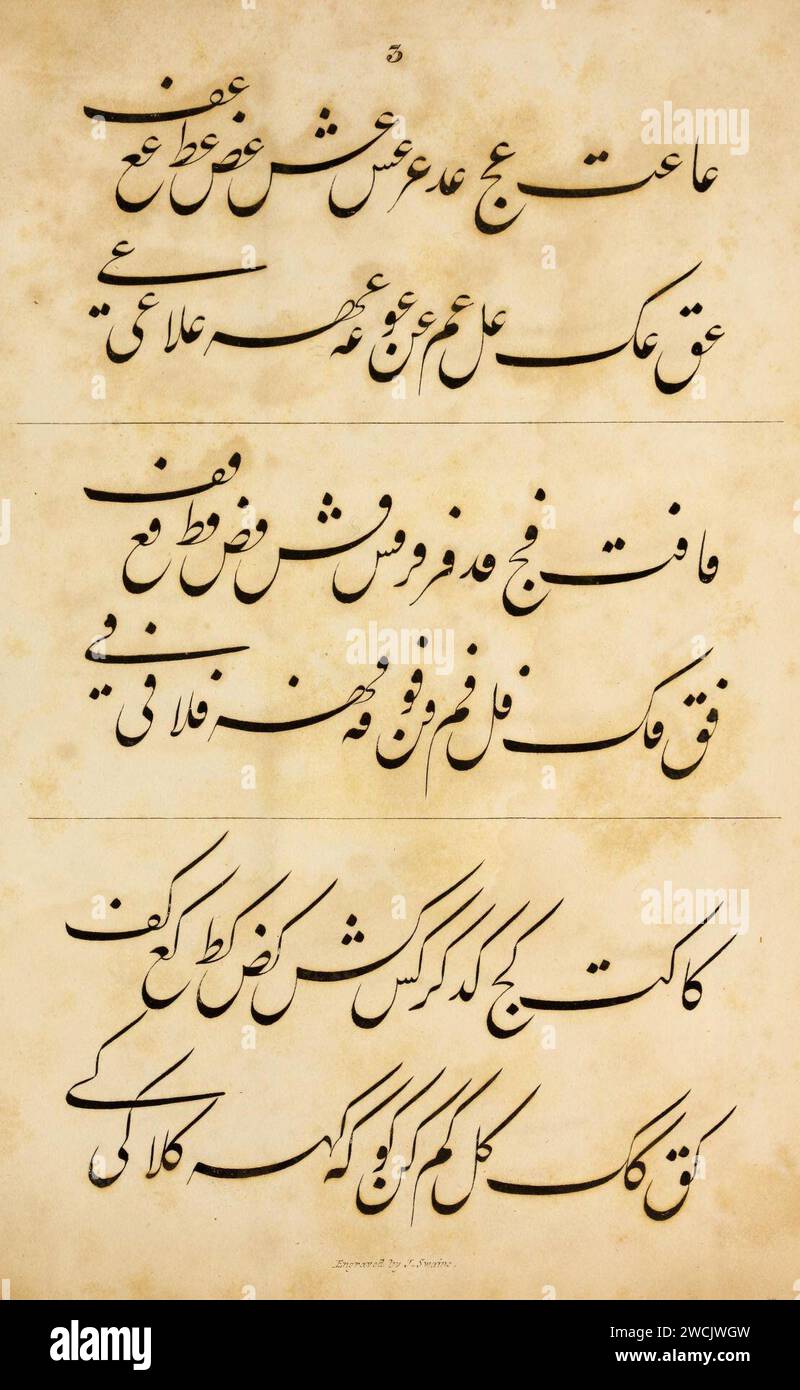 3
عا عت عج عد عر عس عش عض عط عع عف
عق عک عل عم عن عو عه عهه علا عی عے
فا فت فج فد فر فس فش فض فط فع فف
فق فک فل فم فن فو فه فهه فلا فی فے
کا کت کج کد کر کس کش کض کط کع کف
کق کک کل کم کن کو که کهه کلا کی کے
Engraved by J. Swaine.
alamy
Image ID: 2WCJWGW
www.alamy.com